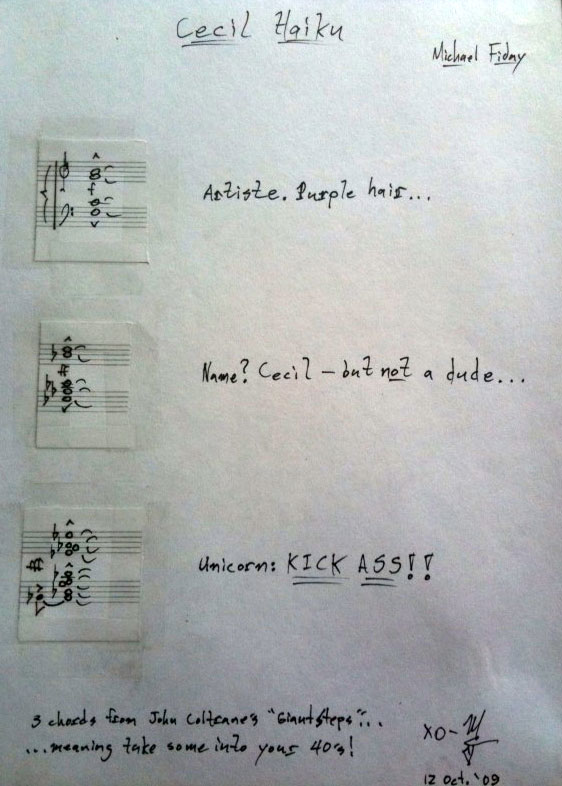 Cecil Haiku
Michael Fiday
f
Artiste. Purple hair...
Name? Cecil – but not a dude...
ff
Unicorn: KICK ASS!!
fff
3 chords from John Coltrane's "Giant Steps"...
...meaning take some into your 40s!
XO-
12 Oct. '09